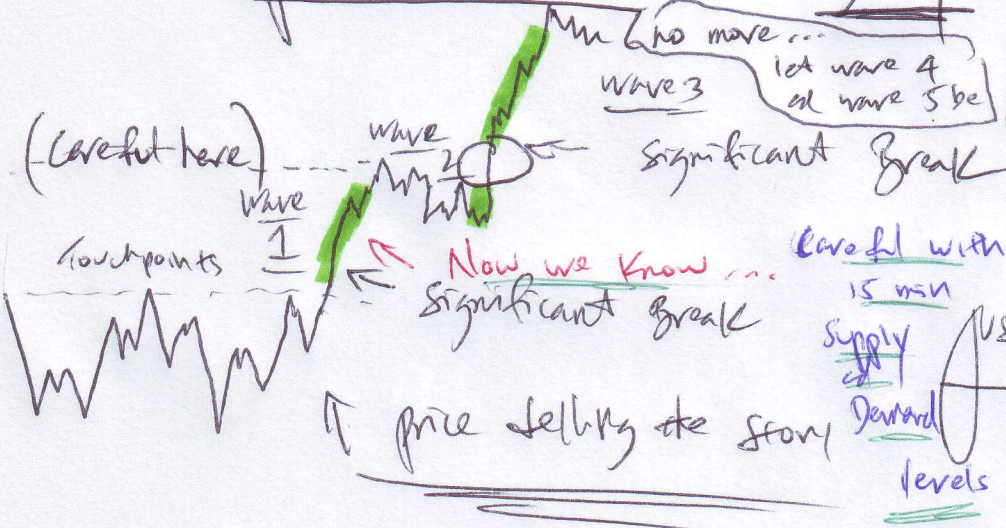 no more...
let wave 4
wave 3
wave 5 be
wave
2
(Careful here)
significant Break
wave
1
Touchpoints
Now we know....
significant Break
Careful with
15 min
Supply
Demand
levels
price telling the story